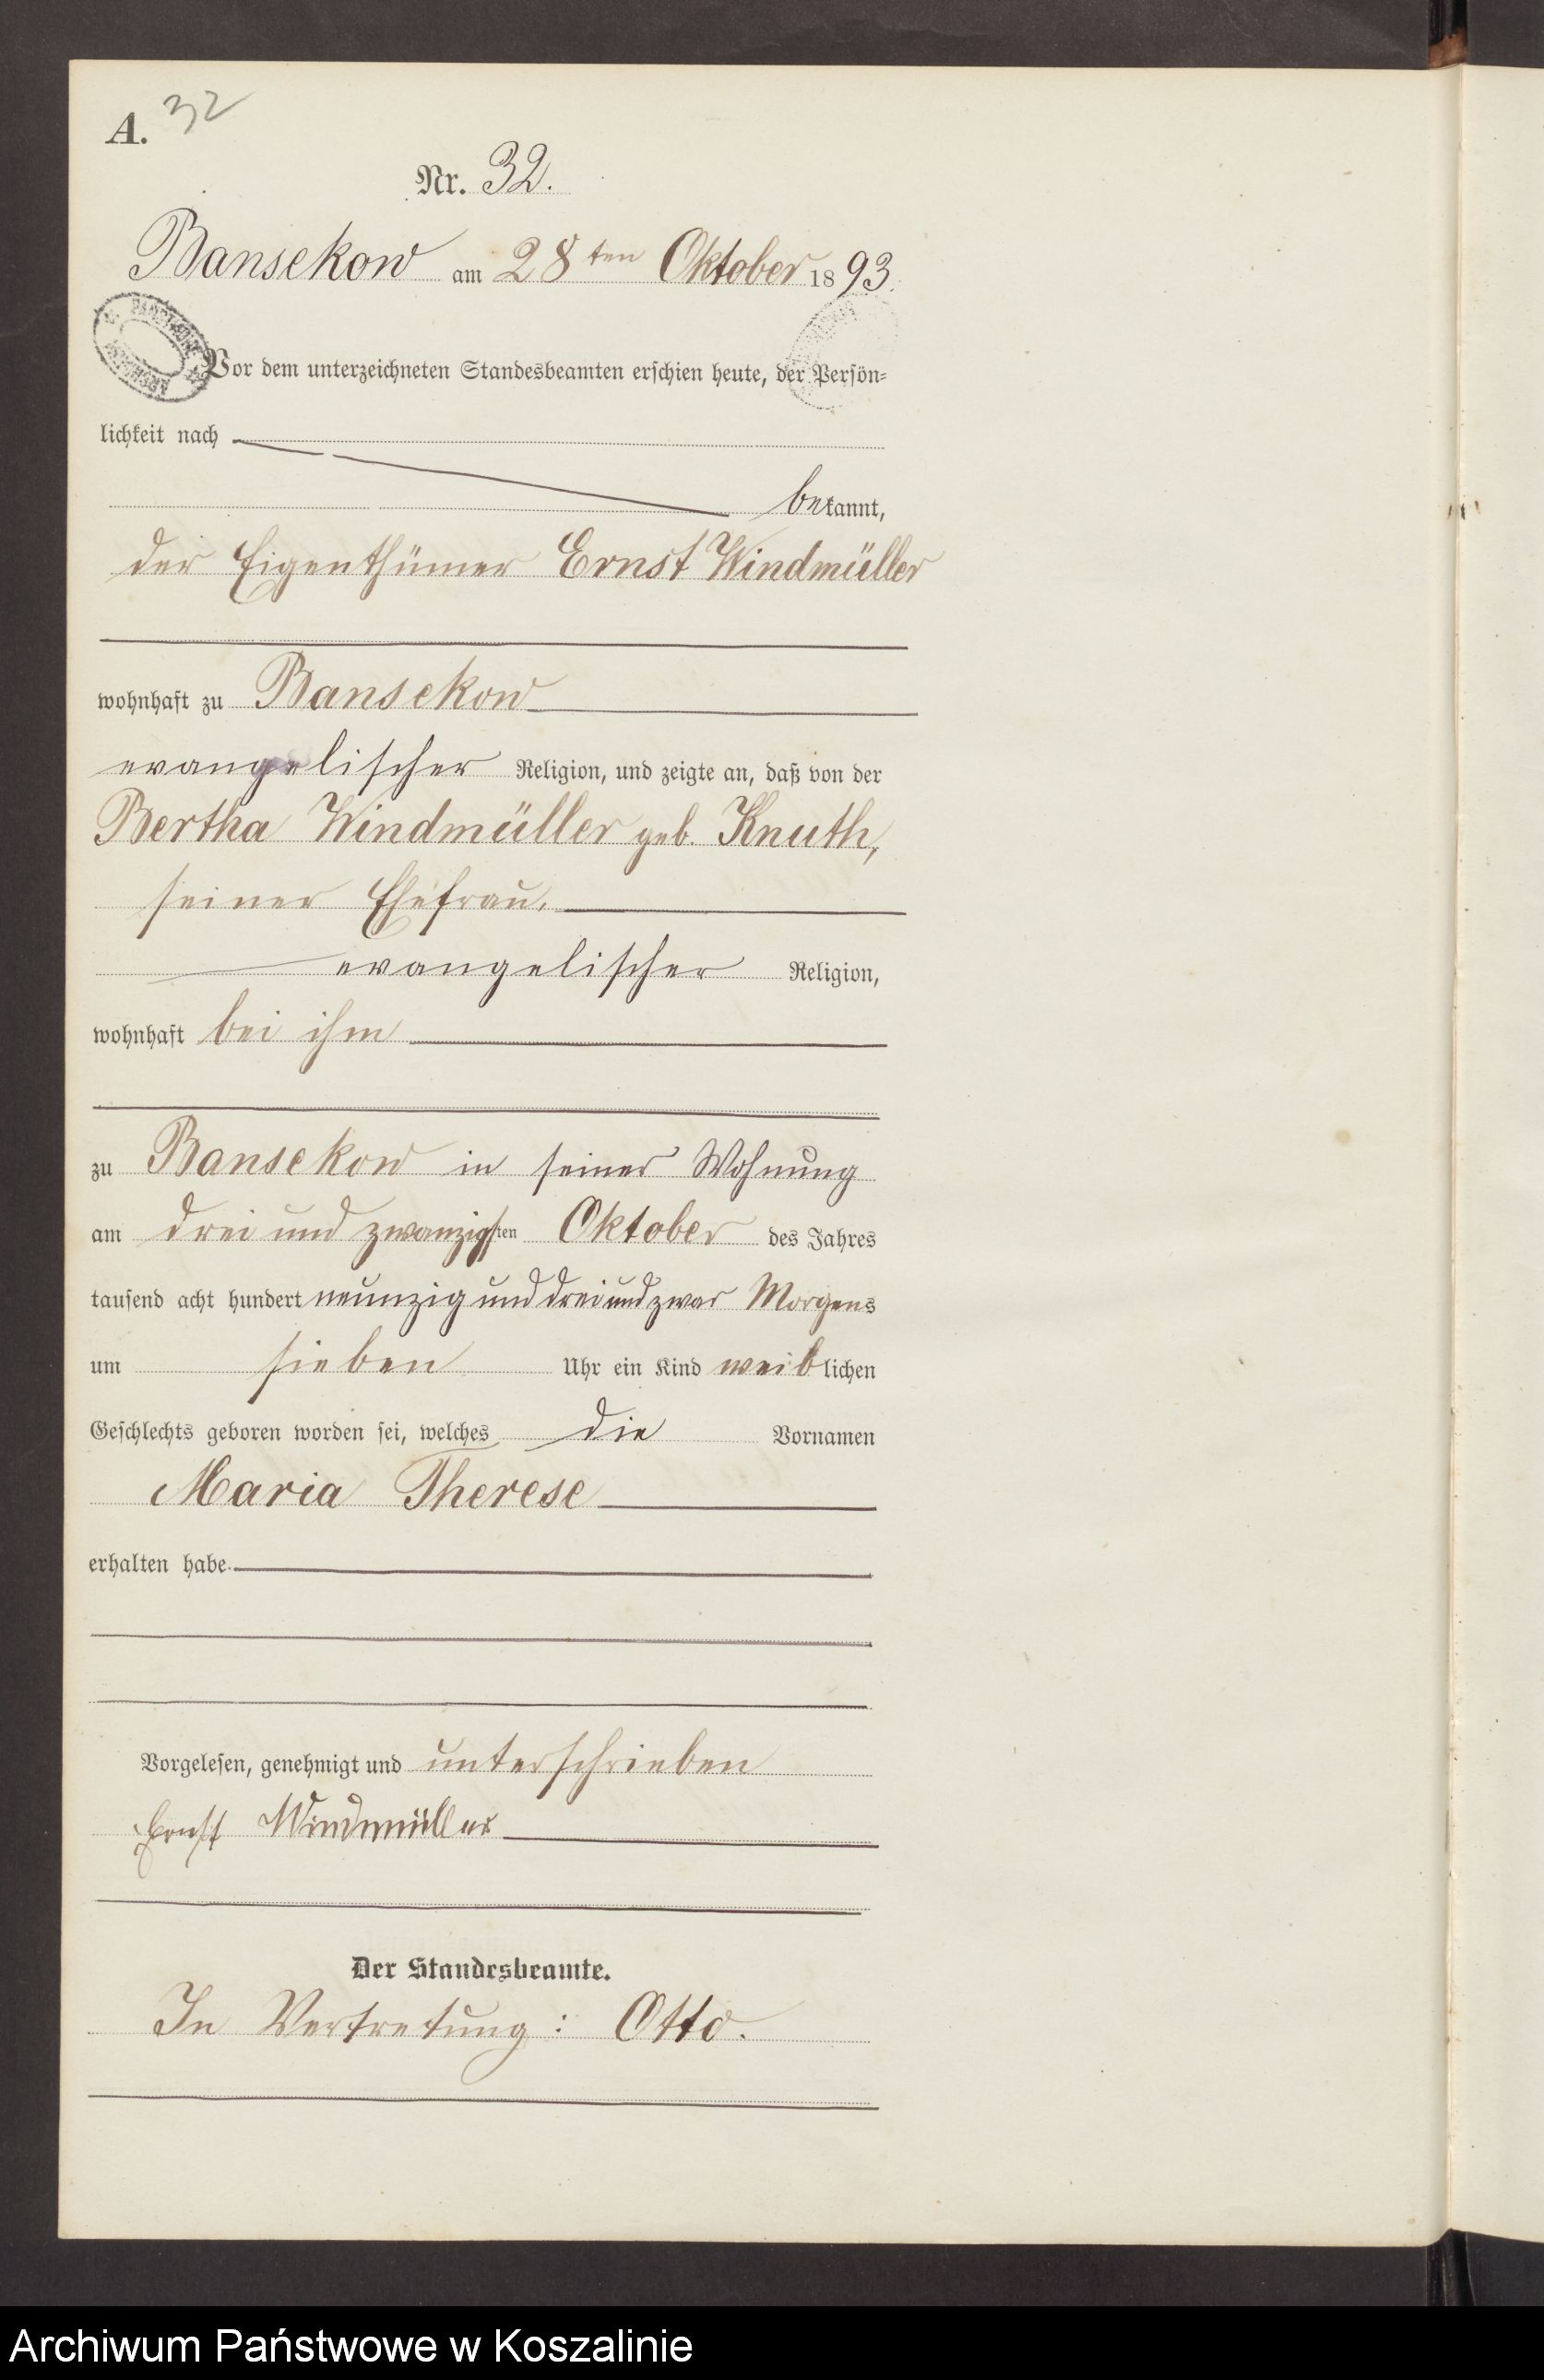 A. 32
Nr. 32.
Bansekow am 28ten Oktober 1893.
Vor dem unterzeichneten Standesbeamten erschien heute, der Persön=
lichkeit nach
bekannt,
der Eigenthümer Ernst Windmüller
wohnhaft zu Bansekow
evangelischer Religion, und zeigte an, daß von der
Bertha Windmüller geb. Knuth,
seiner Ehefrau,
evangelischer Religion,
wohnhaft bei ihm
zu Bansekow in seiner Wohnung
am drei und zwanzigsten Oktober des Jahres
tausend acht hundert neunzig und drei und zwar Morgens
um sieben Uhr ein Kind weiblichen
Geschlechts geboren worden sei, welches die Vornamen
Maria Therese
erhalten habe.
Vorgelesen, genehmigt und unterschrieben
Ernst Windmüller
Der Standesbeamte.
In Vertretung: Otto.
Archiwum Państwowe w Koszalinie